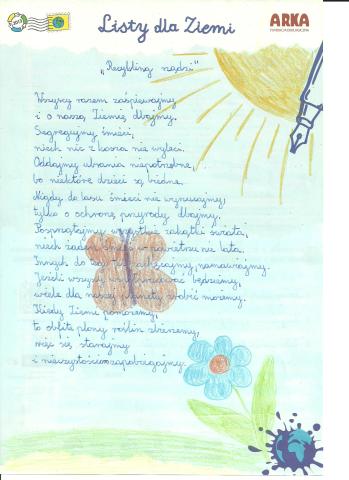 Listy dla Ziemi
ARKA
FUNDACJA EKOLOGICZNA
„Recykling rządzi"
Wszyscy razem zaśpiewajmy
i o naszą Ziemię dbajmy.
Segregujmy śmieci,
niech nic z kosza nie wyleci.
Oddajmy ubrania niepotrzebne,
bo niektóre dzieci są biedne.
Nigdy do lasu śmieci nie wyrzucajmy,
tylko o ochronę przyrody dbajmy.
Posprzątajmy wszystkie zakątki świata,
niech żaden w powietrzu nie lata.
Innych do namawiajmy.
Jeżeli wszyscy będziemy,
wiele dla naszej planety zrobić możemy.
Kiedy Ziemi pomożemy,
to obfite plony roślin zbierzemy,
więc się starajmy
i nieczystościom zapobiegajmy.